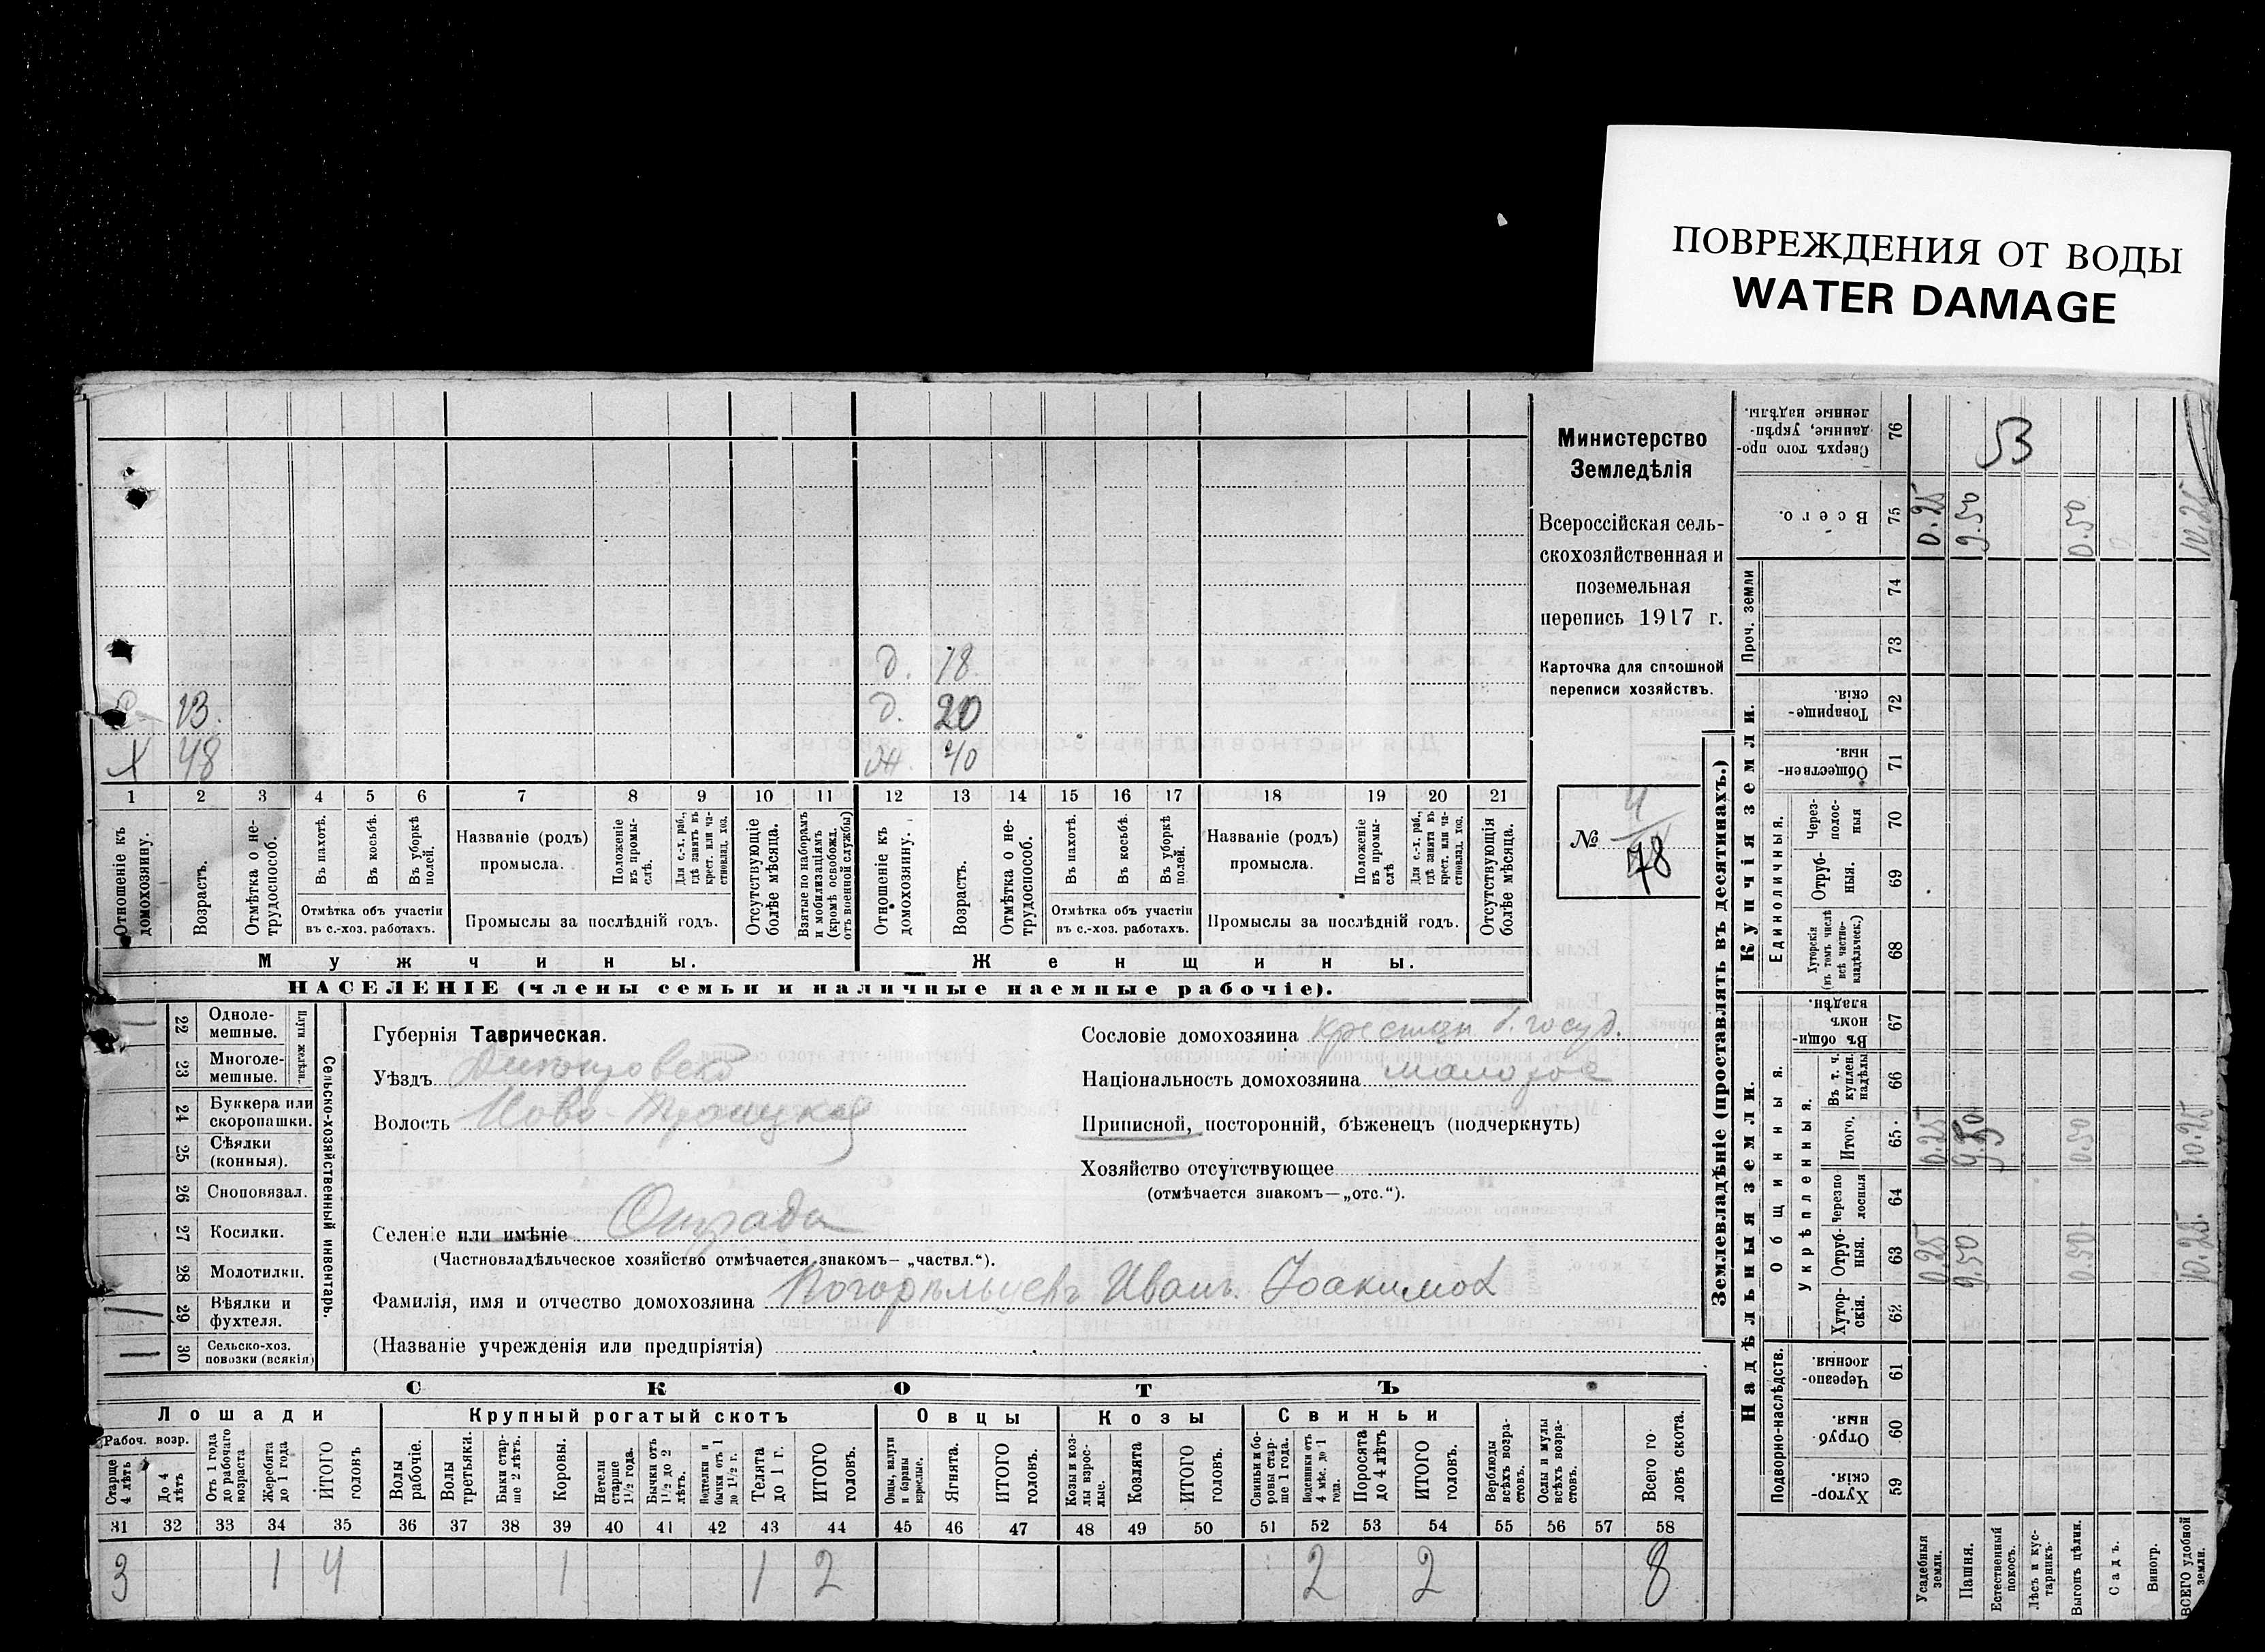 ПОВРЕЖДЕНИЯ ОТ ВОДЫ
WATER DAMAGE
Министерство
Земледѣлія
Всероссійская сель-
скохозяйственная и
поземельная
перепись 1917 г.
Карточка для сплошной
переписи хозяйствъ.
№ 4
78
д. 18
13. д. 20
X 48 ж. 40
1 2 3 4 5 6 7 8 9 10 11 12 13 14 15 16 17 18 19 20 21
Отношеніе къ домохозяину.
Возрастъ.
Отмѣтка о не-трудоспособ.
Въ пахотѣ.
Въ косьбѣ.
Въ уборкѣ полей.
Отмѣтка объ участіи
въ с.-хоз. работахъ.
Названіе (родъ)
промысла.
Положеніе въ промы-слѣ.
Для с.-х. раб., гдѣ занятъ въ крест. или ча-стновлад. хоз.
Промыслы за послѣдній годъ.
Отсутствующіе болѣе мѣсяца.
Взятые по наборамъ и мобилизаціямъ (кромѣ освобожд. отъ военной службы)
Отношеніе къ домохозяину.
Возрастъ.
Отмѣтка о не-трудоспособ.
Въ пахотѣ.
Въ косьбѣ.
Въ уборкѣ полей.
Отмѣтка объ участіи
въ с.-хоз. работахъ.
Названіе (родъ)
промысла.
Положеніе въ промы-слѣ.
Для с.-х. раб., гдѣ занята въ крест. или ча-стновлад. хоз.
Промыслы за послѣдній годъ.
Отсутствующія болѣе мѣсяца.
Мужчины. Женщины.
НАСЕЛЕНІЕ (члены семьи и наличные наемные рабочіе).
22 Одноле-мешные.
23 Многоле-мешные.
Плуги желѣзн.
24 Буккера или скоропашки.
25 Сѣялки (конныя).
26 Сноповязал.
27 Косилки.
28 Молотилки.
29 Вѣялки и фухтеля.
30 Сельско-хоз. повозки (всякія)
Сельско-хозяйственный инвентарь.
Губернія Таврическая.
Уѣздъ Днѣпровскій
Волость Ново-Троицкая
Селеніе или имѣніе Отрада
(Частновладѣльческое хозяйство отмѣчается знакомъ— „частвл.“).
Фамилія, имя и отчество домохозяина Погорѣльцевъ Иванъ Іоакимов
(Названіе учрежденія или предпріятія)
Сословіе домохозяина крестян. б. госуд.
Національность домохозяина малорос
Приписной, посторонній, бѣженецъ (подчеркнуть)
Хозяйство отсутствующее
(отмѣчается знакомъ—„отс.“).
СКОТЪ
Лошади Крупный рогатый скотъ Овцы Козы Свиньи
Рабоч. возр.
Старше 4 лѣтъ
До 4 лѣтъ
Отъ 1 года до рабочаго возраста
Жеребята до 1 года
ИТОГО головъ
Волы рабочіе.
Волы третьяки.
Быки стар-ше 2 лѣтъ.
Коровы.
Нетели старше 1½ года.
Бычки отъ 1½ до 2 лѣтъ.
Подтелки и бычки отъ 1 до 1½ г.
Телята до 1 г.
ИТОГО головъ.
Овцы, валухи и бараны взрослые.
Ягнята.
ИТОГО головъ.
Козы и коз-лы взрос-лые.
Козлята
ИТОГО головъ.
Свиньи и бо-ровы стар-ше 1 года.
Подсвинки отъ 4 мѣс. до 1 года.
Поросята до 4 лѣтъ
ИТОГО головъ.
Верблюды всѣхъ возра-стовъ.
Ослы и мулы всѣхъ возра-стовъ.
Всего го-ловъ скота.
31 32 33 34 35 36 37 38 39 40 41 42 43 44 45 46 47 48 49 50 51 52 53 54 55 56 57 58
3 1 4 1 1 2 2 2 8
Землевладѣніе (проставлять въ десятинахъ.)
Надѣльныя земли. Купчія земли.
Подворно-наслѣдств.
Общинныя.
Укрѣпленныя.
Единоличныя.
Проч. земли
Сверхъ того про-данные, укрѣп-ленные надѣлы. 76 53
Всего. 75 0.25 9.50 0.50 10.25
74
73
Товарище-скія. 72
Обществен-ныя. 71
Через-полос-ныя 70
Отруб-ныя. 69
Хуторскія (въ томъ числѣ всѣ частно-владѣльческ.) 68
Въ общин-номъ владѣн. 67
Въ т. ч. куплен. надѣлы 66
Итого. 65 0.25 9.50 0.50 10.25
Черезпо-лосныя 64
Отруб-ныя. 63 0.25 9.50 0.50 10.25
Хутор-скія. 62
Черезпо-лосныя. 61
Отруб-ныя. 60
Хутор-скія. 59
Усадебныя земли.
Пашня.
Естественный покосъ.
Лѣсъ и кус-тарникъ.
Выгонъ цѣлин.
Садъ.
Виногр.
ВСЕГО удобной земли.